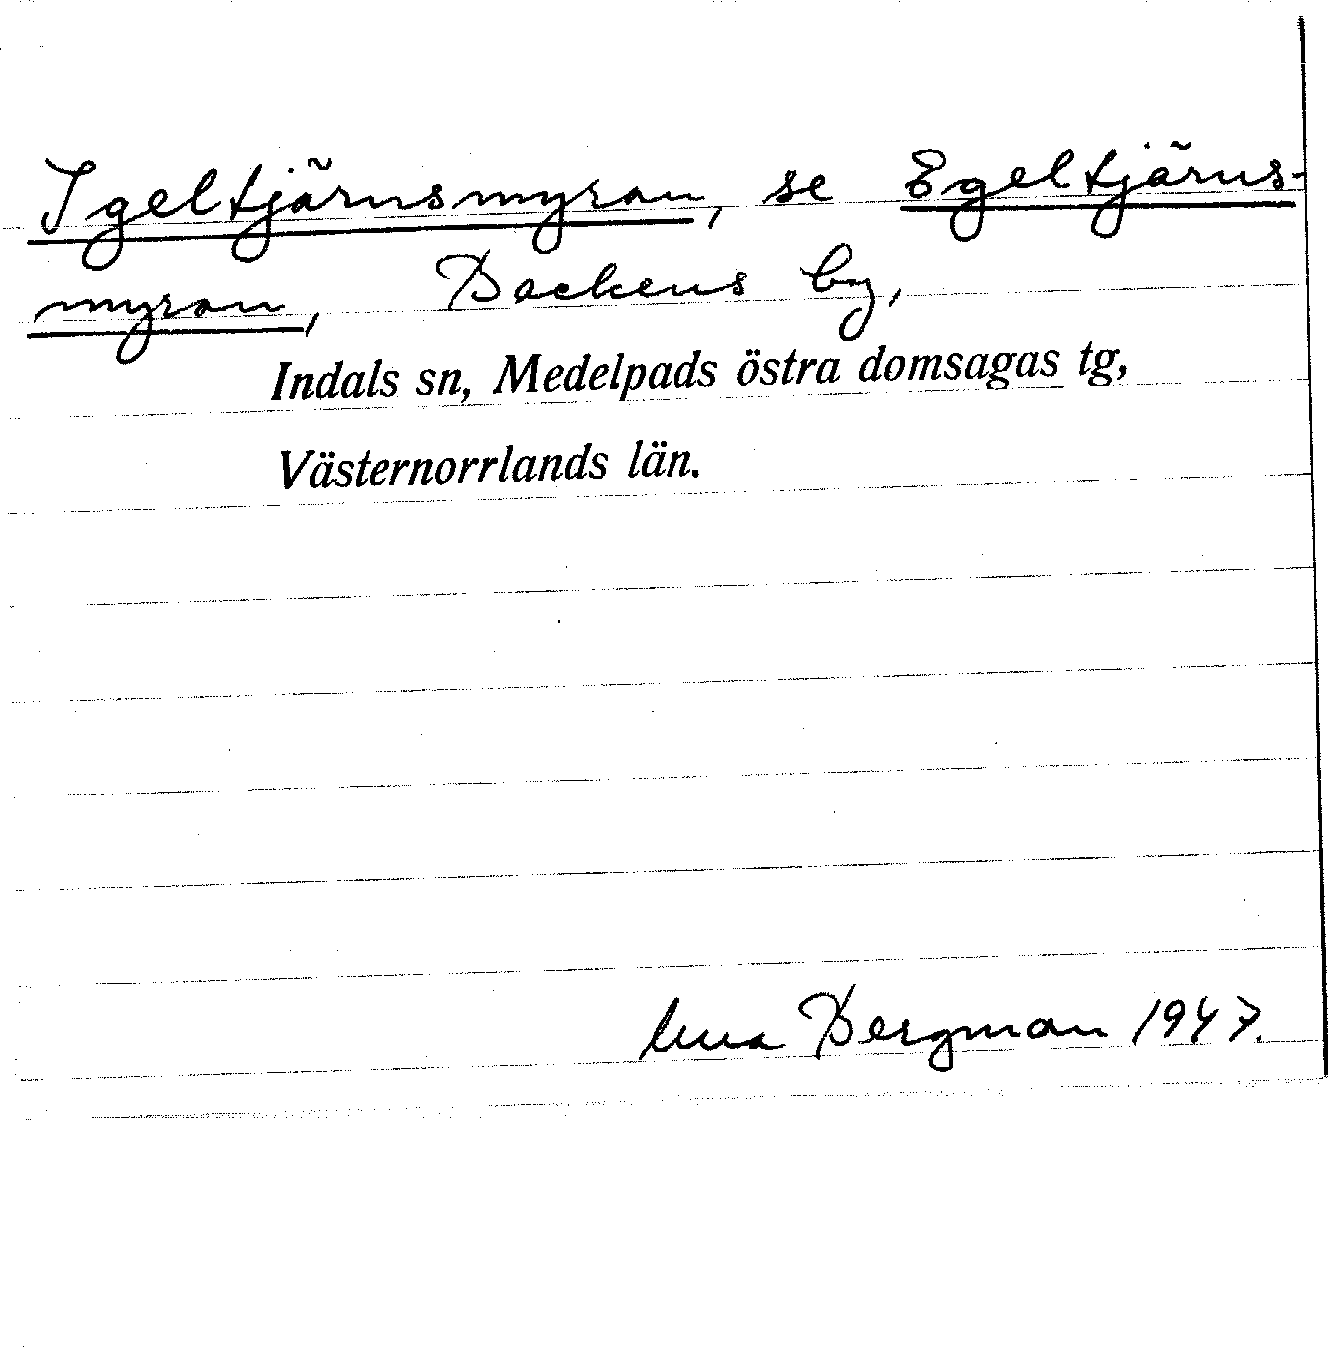 Igeltjärnsmyran, se Egeltjärns-
myran, Backens by,
Indals sn, Medelpads östra domsagas tg,
Västernorrlands län.
Bergman 1947.